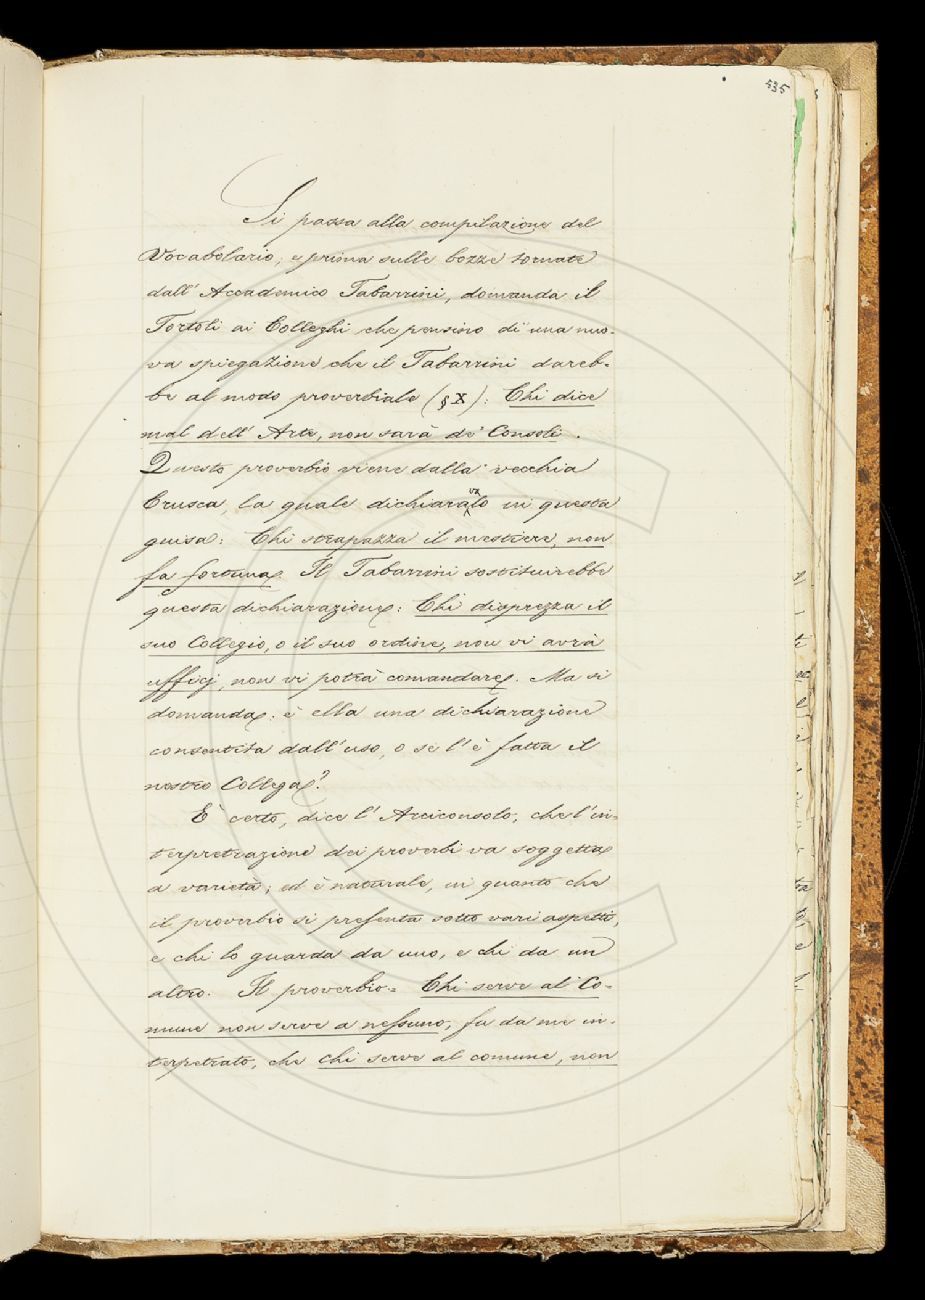 535
Si passa alla compilazione del
Vocabolario; e prima sulle bozze tornate
dall' Accademico Tabarrini, domanda il
Tortoli ai Colleghi che pensino di una nuo-
va spiegazione che il Tabarrini dareb-
be al modo proverbiale (§ X): Chi dice
mal dell' Arte, non sarà de' Consoli.
Questo proverbio viene dalla vecchia
Crusca, la quale dichiaravalo in questa
guisa: Chi strapazza il mestiere, non
fa fortuna. Il Tabarrini sostituirebbe
questa dichiarazione: Chi disprezza il
suo Collegio, o il suo ordine, non vi avrà
ufficj, non vi potrà comandare. Ma si
domanda: è ella una dichiarazione
consentita dall' uso, o se l' è fatta il
nostro Collega?
È certo, dice l' Arciconsolo, che l' in-
terpretrazione dei proverbi va soggetta
a varietà; ed è naturale, in quanto che
il proverbio si presenta sotto vari aspetti,
e chi lo guarda da uno, e chi da un
altro. Il proverbio = Chi serve al Co-
mune non serve a nessuno, fu da me in-
terpetrato, che chi serve al comune, non